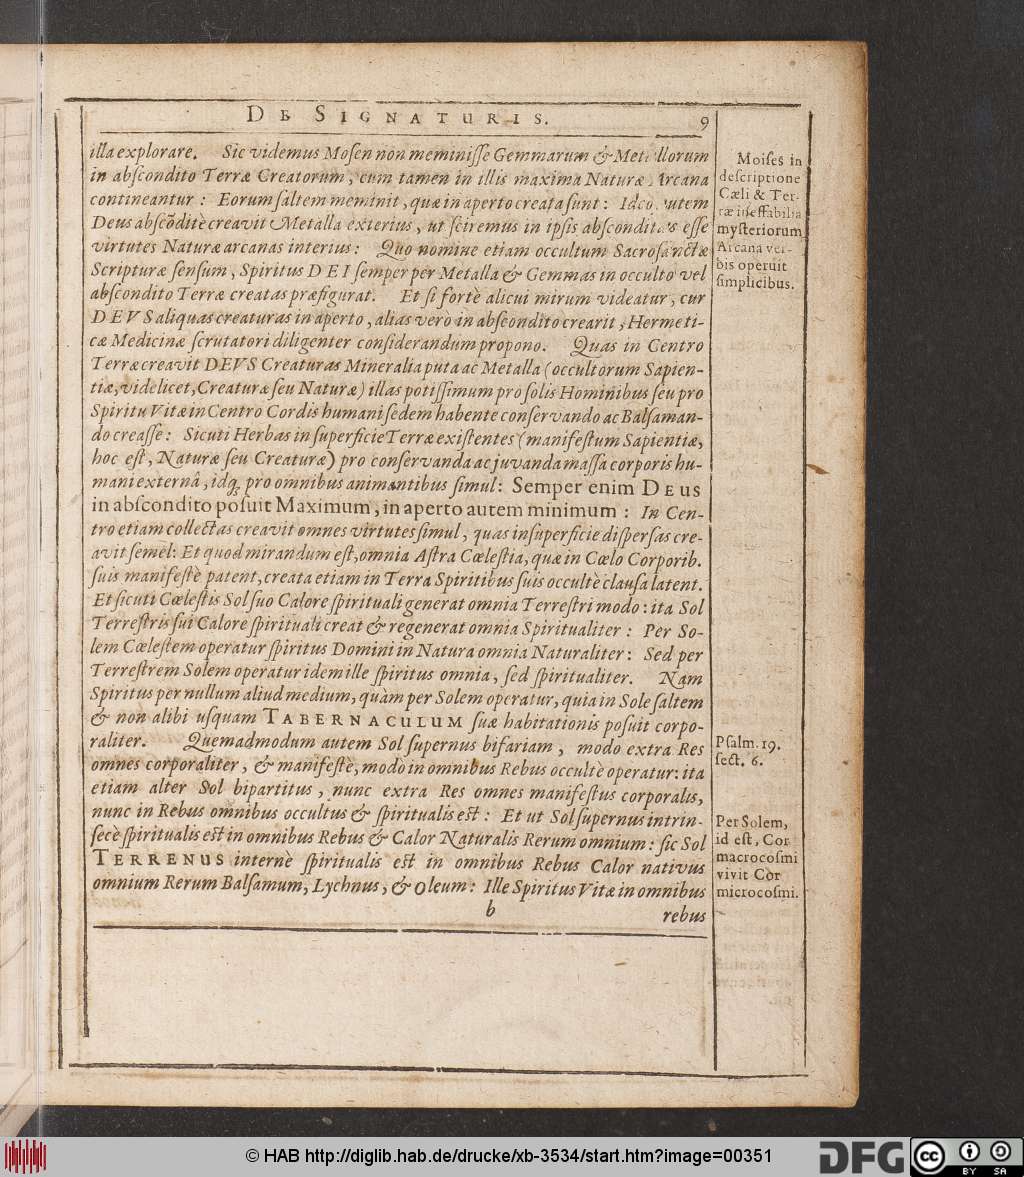 DE SIGNATURIS. 9
illa explorare. Sic videmus Mosen non meminiſſe Gemmarum & Metallorum
in abſcondito Terræ Creatorum, cum tamen in illis maxima Naturæ Arcana
contineantur: Eorum ſaltem meminit, quæ in aperto creata ſunt: Ideo autem
Deus abſcõditè creavit Metalla exterius, ut ſciremus in ipſis abſconditas eſſe
virtutes Naturæ arcanas interius: Quo nomine etiam occultum Sacroſanctæ
Scripturæ ſenſum, Spiritus DEI ſemper per Metalla & Gemmas in occulto vel
abſcondito Terræ creatas præfigurat. Et ſi fortè alicui mirum videatur, cur
DEVS aliquas creaturas in aperto, alias vero in abſcondito crearit, Hermeti-
cæ Medicinæ ſcrutatori diligenter conſiderandum propono. Quas in Centro
Terræ creavit DEVS Creaturas Mineralia puta ac Metalla (occultorum Sapien-
tiæ, videlicet, Creaturæ ſeu Naturæ) illas potiſſimum pro ſolis Hominibus ſeu pro
Spiritu Vitæ in Centro Cordis humani ſedem habente conſervando ac Balſaman-
do creaſſe: Sicuti Herbas in ſuperficie Terræ exiſtentes (manifeſtum Sapientiæ,
hoc eſt, Naturæ ſeu Creaturæ) pro conſervanda ac juvanda maſſa corporis hu-
mani externâ, idq; pro omnibus animantibus ſimul: Semper enim DEUS
in abſcondito poſuit Maximum, in aperto autem minimum: In Cen-
tro etiam collectas creavit omnes virtutes ſimul, quas in ſuperficie diſperſas cre-
avit ſemel: Et quod mirandum eſt, omnia Aſtra Cœleſtia, quæ in Cœlo Corporib.
ſuis manifeſtè patent, creata etiam in Terra Spiritibus ſuis occultè clauſa latent.
Et ſicuti Cœleſtis Sol ſuo Calore ſpirituali generat omnia Terreſtri modo: ita Sol
Terreſtris ſui Calore ſpirituali creat & regenerat omnia Spiritualiter: Per So-
lem Cœleſtem operatur ſpiritus Domini in Natura omnia Naturaliter: Sed per
Terreſtrem Solem operatur idem ille ſpiritus omnia, ſed ſpiritualiter. Nam
Spiritus per nullum aliud medium, quàm per Solem operatur, quia in Sole ſaltem
& non alibi uſquam TABERNACULUM ſuæ habitationis poſuit corpo-
raliter. Quemadmodum autem Sol ſupernus bifariam, modo extra Res
omnes corporaliter, & manifeſtè, modo in omnibus Rebus occultè operatur: ita
etiam alter Sol bipartitus, nunc extra Res omnes manifeſtus corporalis,
nunc in Rebus omnibus occultus & ſpiritualis eſt: Et ut Sol ſupernus intrin-
ſecè ſpiritualis eſt in omnibus Rebus & Calor Naturalis Rerum omnium: ſic Sol
TERRENUS internè ſpiritualis eſt in omnibus Rebus Calor nativus
omnium Rerum Balſamum, Lychnus, & Oleum: Ille Spiritus Vitæ in omnibus
b rebus
Moiſes in
deſcriptione
Cæli & Ter-
ræ ineffabilia
myſteriorum
Arcana ver-
bis operuit
ſimplicibus.
Pſalm. 19.
ſect. 6.
Per Solem,
id eſt, Cor
macrocoſmi
vivit Cor
microcoſmi.
© HAB http://diglib.hab.de/drucke/xb-3534/start.htm?image=00351
DFG
cc BY SA